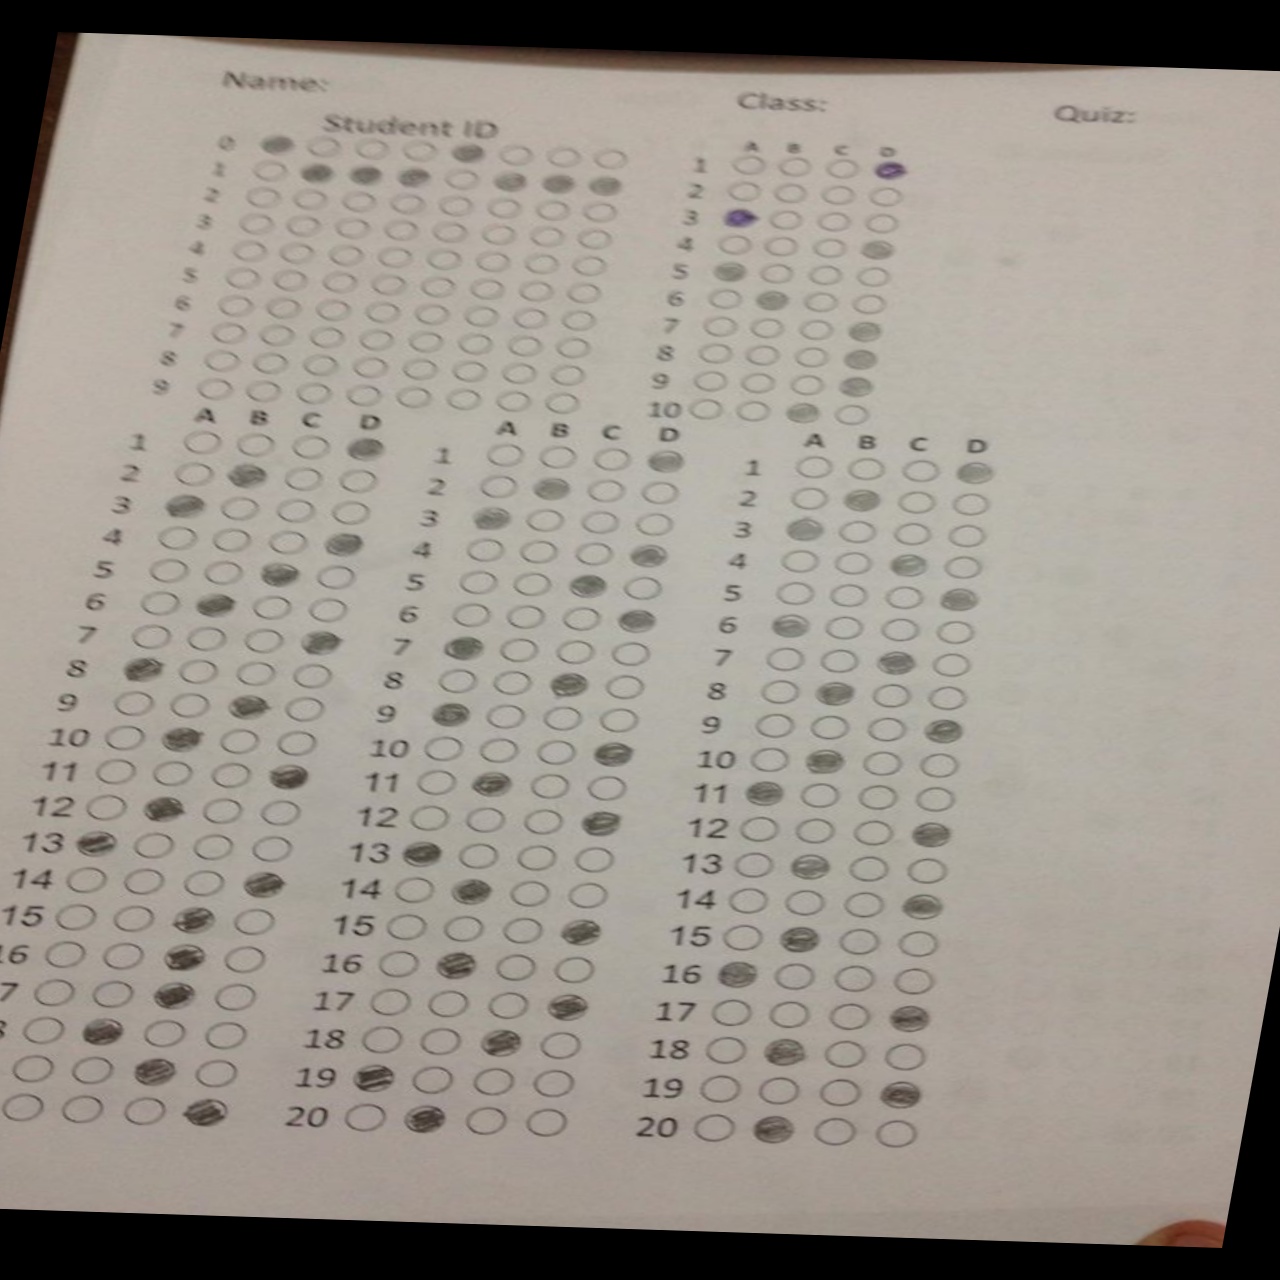 Name: Class: Quiz:
Student ID
A B C D
0
1
2
3
4
5
6
7
8
9
1
2
3
4
5
6
7
8
9
10
A B C D
1
2
3
4
5
6
7
8
9
10
11
12
13
14
15
16
7
A B C D
1
2
3
4
5
6
7
8
9
10
11
12
13
14
15
16
17
18
19
20
A B C D
1
2
3
4
5
6
7
8
9
10
11
12
13
14
15
16
17
18
19
20